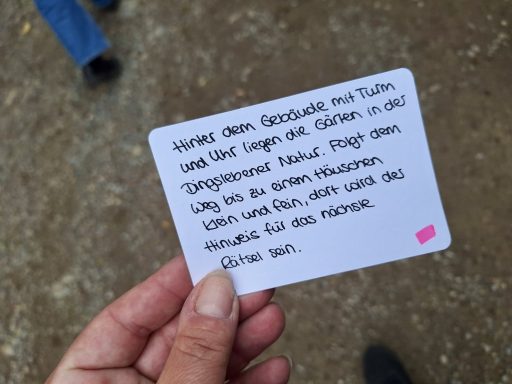 Hinter dem Gebäude mit Turm
und Uhr liegen die Gärten in der
Dingslebener Natur. Folgt dem
Weg bis zu einem Häuschen
klein und fein, dort wird der
Hinweis für das nächste
Rätsel sein.